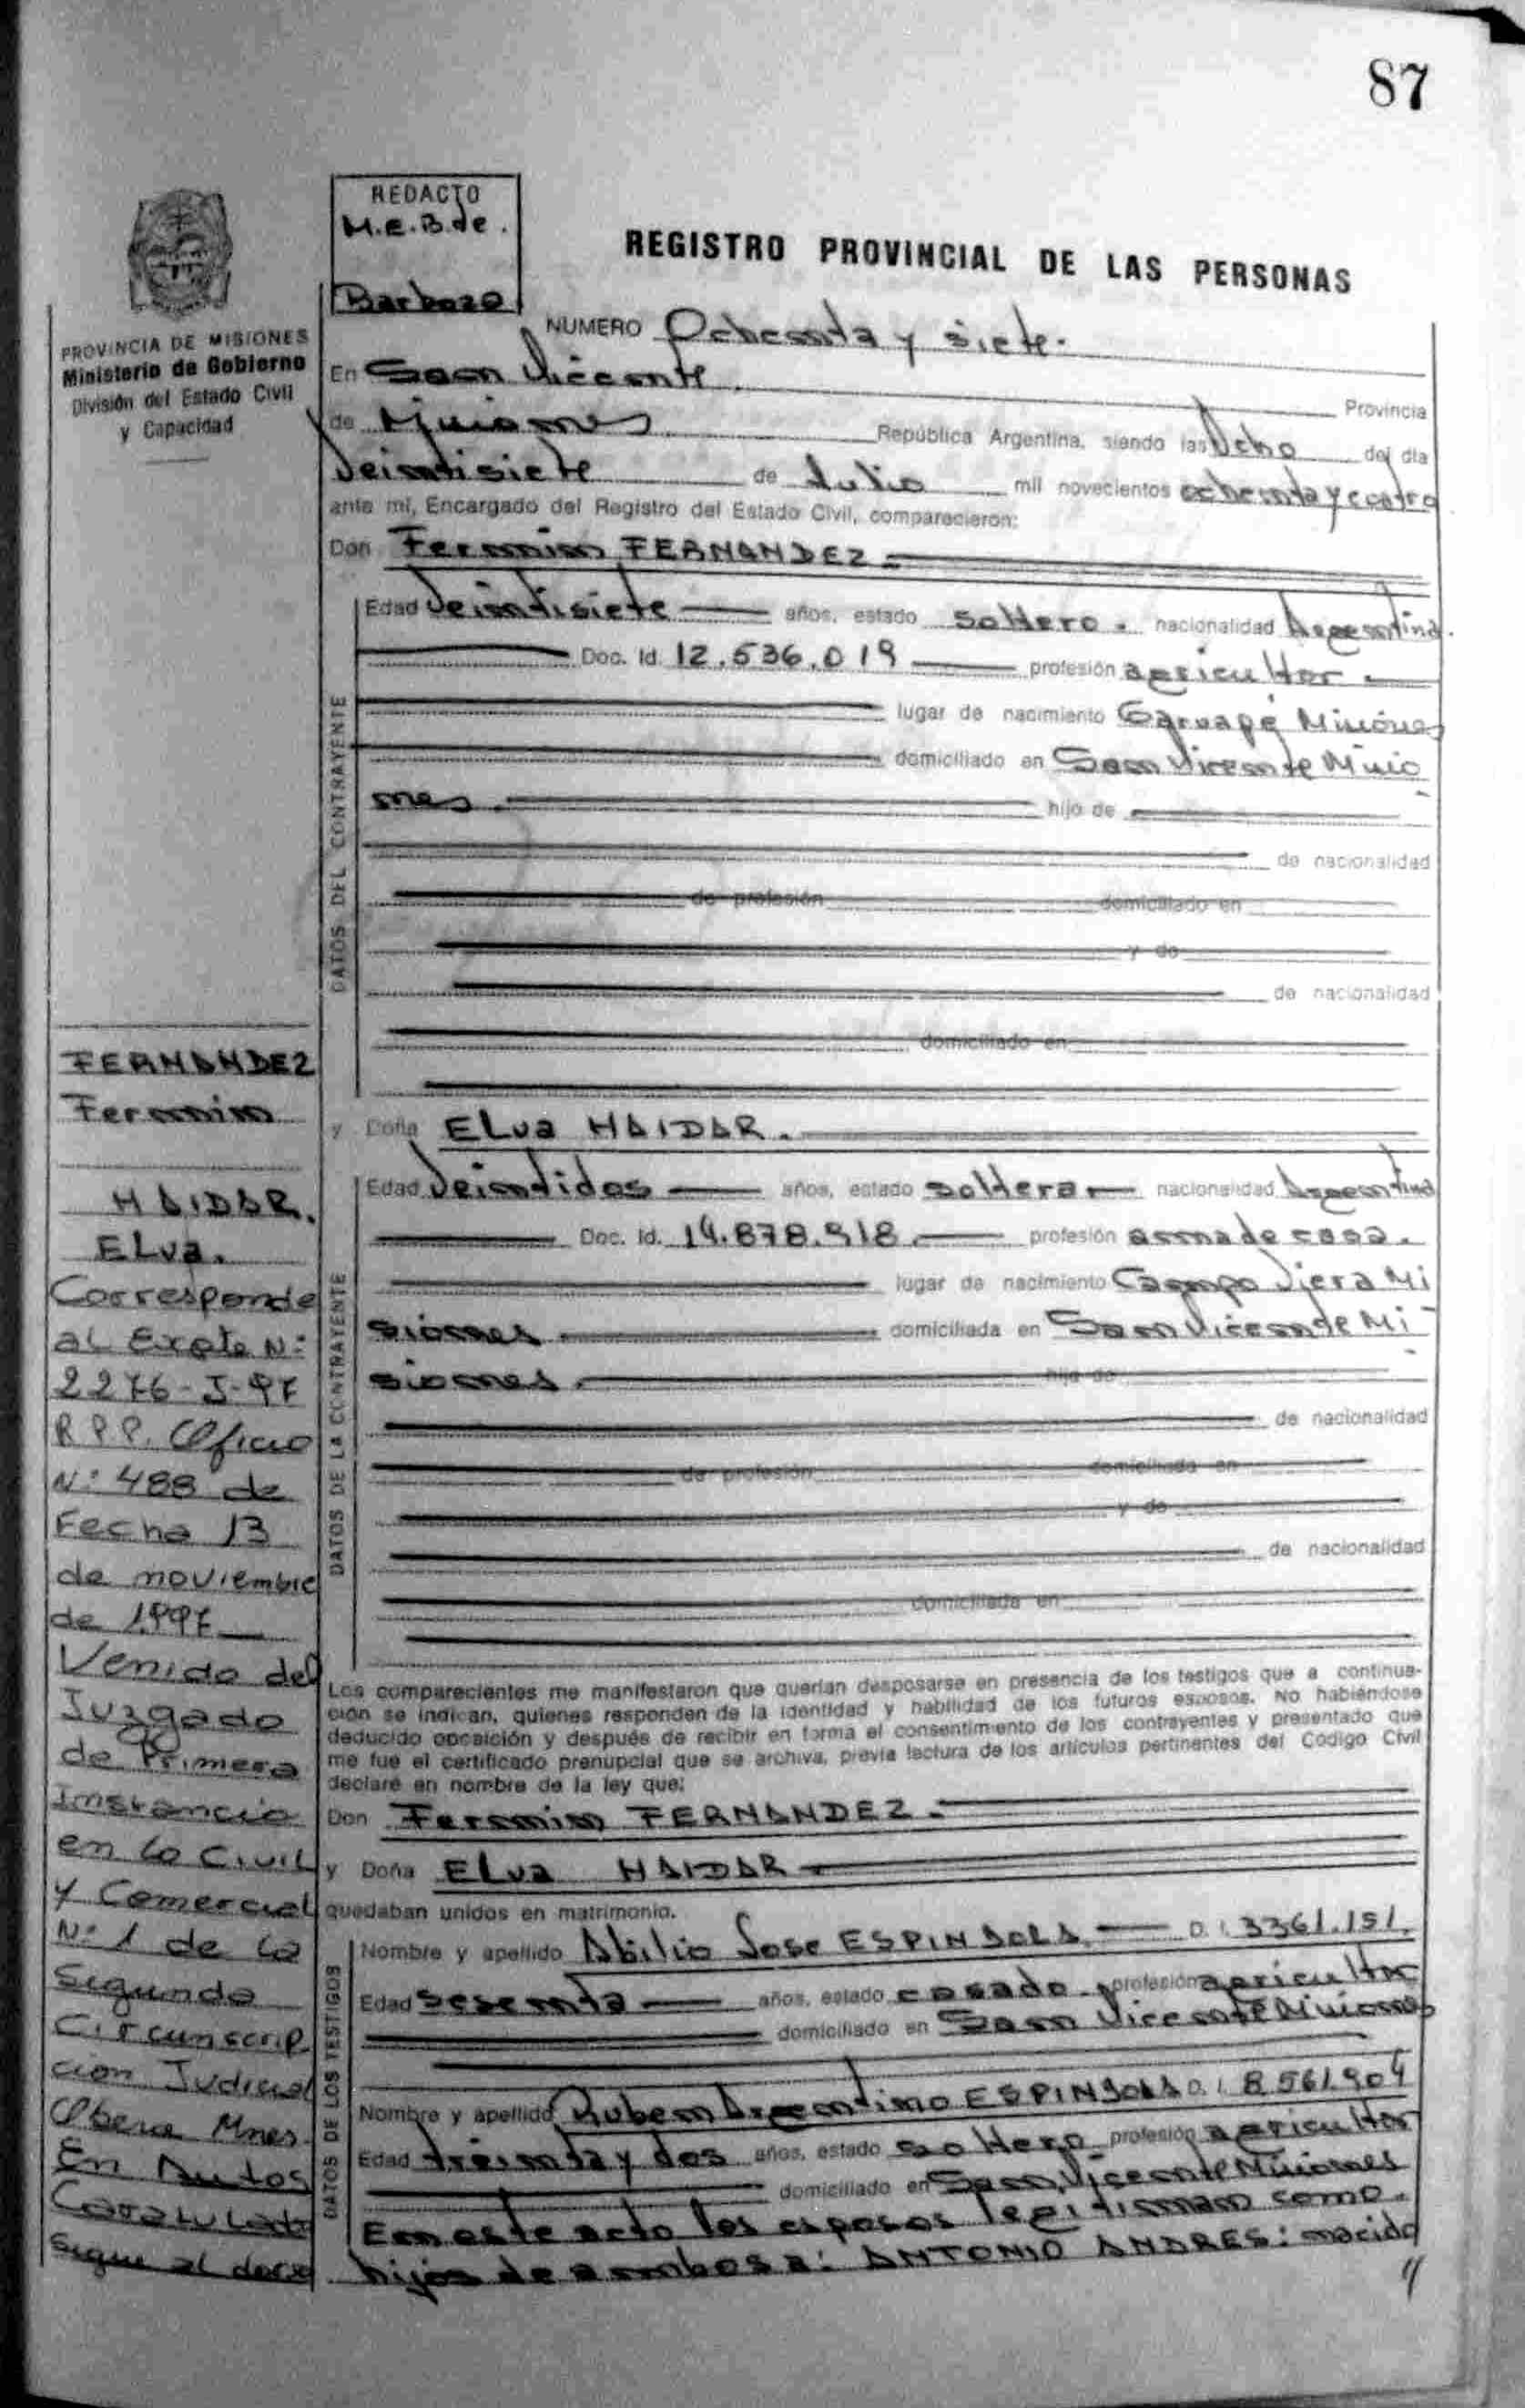 87
REDACTO
M.E.B. de.
Barboza
REGISTRO PROVINCIAL DE LAS PERSONAS
PROVINCIA DE MISIONES
Ministerio de Gobierno
División del Estado Civil
y Capacidad
NUMERO Ochenta y siete.
En San Vicente, Provincia
de Misiones República Argentina, siendo las Ocho del día
Veintisiete de Julio mil novecientos ochenta y cuatro
ante mí, Encargado del Registro del Estado Civil, comparecieron:
Don Fermin FERNANDEZ.
DATOS DEL CONTRAYENTE
Edad Veintisiete años, estado soltero. nacionalidad Argentina.
Doc. Id. 12.536.019 profesión agricultor
lugar de nacimiento Garuapé Misiones
domiciliado en San Vicente Misio
nes. hijo de
de nacionalidad
de profesión domiciliado en
y de
de nacionalidad
domiciliado en
y Doña ELva HAIDAR.
DATOS DE LA CONTRAYENTE
Edad Veintidos años, estado soltera nacionalidad Argentina
Doc. Id. 14.878.918 profesión ama de casa.
lugar de nacimiento Campo Viera Mi
siones domiciliada en San Vicente Mi
siones. hija de
de nacionalidad
de profesión domiciliada en
y de
de nacionalidad
domiciliada en
Los comparecientes me manifestaron que querían desposarse en presencia de los testigos que a continua-
ción se indican, quienes responden de la identidad y habilidad de los futuros esposos. No habiéndose
deducido oposición y después de recibir en forma el consentimiento de los contrayentes y presentado que
me fue el certificado prenupcial que se archiva, previa lectura de los artículos pertinentes del Código Civil
declaré en nombre de la ley que:
Don Fermin FERNANDEZ.
y Doña ELva HAIDAR
quedaban unidos en matrimonio.
DATOS DE LOS TESTIGOS
Nombre y apellido Abilio Jose ESPINDOLA D.I. 3361.151.
Edad sesenta años, estado casado profesión agricultor
domiciliado en San Vicente Misiones
Nombre y apellido Ruben Argentino ESPINDOLA D.I. 8561.904
Edad treinta y dos años, estado soltero profesión agricultor
domiciliado en San Vicente Misiones
En este acto los esposos legitiman como
hijos de ambos a: ANTONIO ANDRES: nacido
//
FERNANDEZ
Fermin
HAIDAR.
ELva.
Corresponde
al Expte N:
2276-J-97
R.P.P. Oficio
N: 488 de
Fecha 13
de noviembre
de 1997
Venido del
Juzgado
de Primera
Instancia
en lo Civil
y Comercial
N: 1 de la
Segunda
Circunscrip
cion Judicial
Obera Mnes.
En Autos
Caratulado
Sigue al dorso